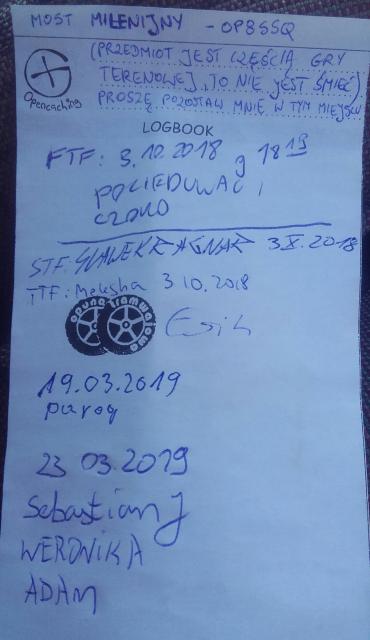 MOST MILENIJNY - OP8SSQ
(PRZEDMIOT JEST CZĘŚCIĄ GRY
TERENOWEJ, TO NIE JEST ŚMIEĆ)
PROSZĘ POZOSTAW MNIE W TYM MIEJSCU
Opencaching
LOGBOOK
FTF: 3.10.2018 g 18 19
CZOŁO
STF. SLAWEKRAGNAR 3 X. 2018
TTF: Meksha 3 10.2018
opuna tramwajowa
19.03.2019
puroq
23 03.2019
Sebastian J
WERONIKA
ADAM